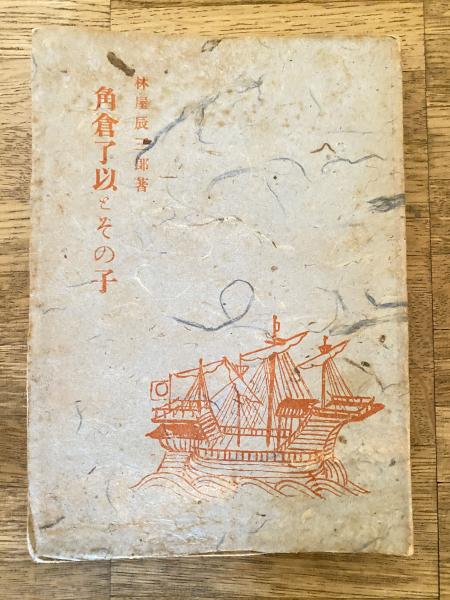 林屋辰三郎著
角倉了以とその子